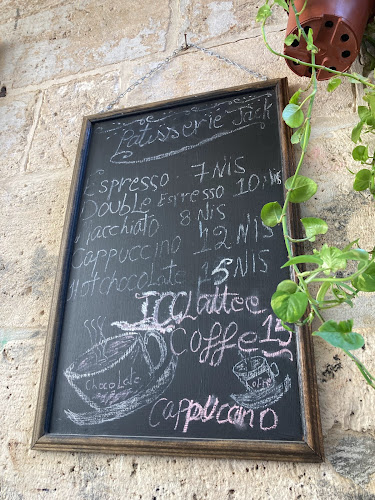 Patisserie Jack
Espresso 7 NIS
Double Espresso 10 NIS
Macchiato 8 NIS
Cappuccino 12 NIS
Hot chocolate 15 NIS
ICE lattee
Coffe 15
Chocolate
Coffe
Cappuccino